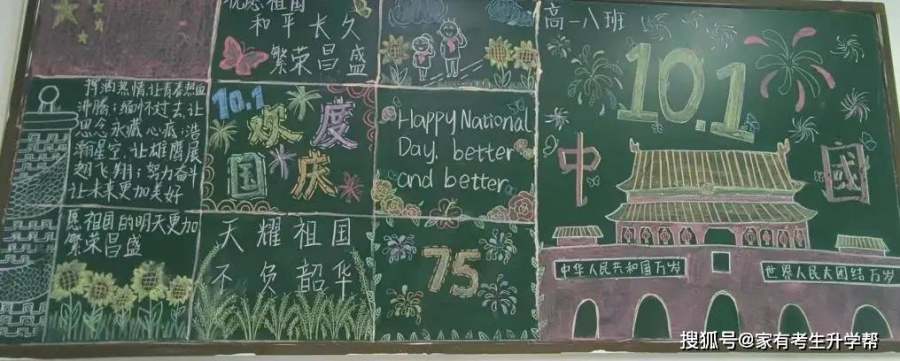 愿祖国
和平长久
繁荣昌盛
挥洒热情,让青春热血
沸腾;缅怀过去,让
思念永藏心底;浩
瀚星空,让雄鹰展
翅飞翔;努力奋斗
让未来更加美好
10.1
欢度
国庆
Happy National
Day, better
and better
愿祖国的明天更加
繁荣昌盛
天耀祖国
不负韶华
75
高一八班
10.1
中国
中华人民共和国万岁
世界人民大团结万岁
搜狐号@家有考生升学帮